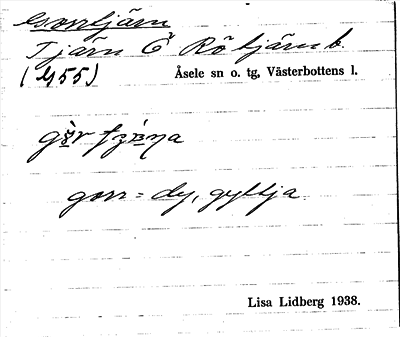 Gorrtjärn
Tjärn Ö Rötjärnb.
(455)
Åsele sn o. tg, Västerbottens l.
gorr = dy, gyttja
Lisa Lidberg 1938.